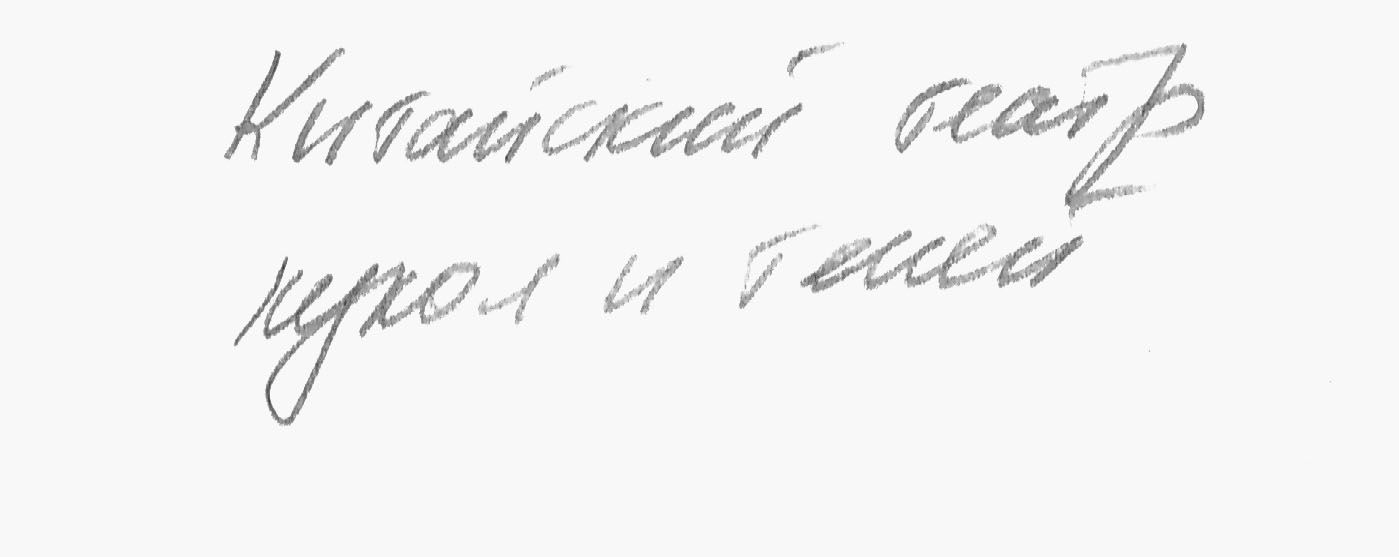 Китайский театр
кукол и теней